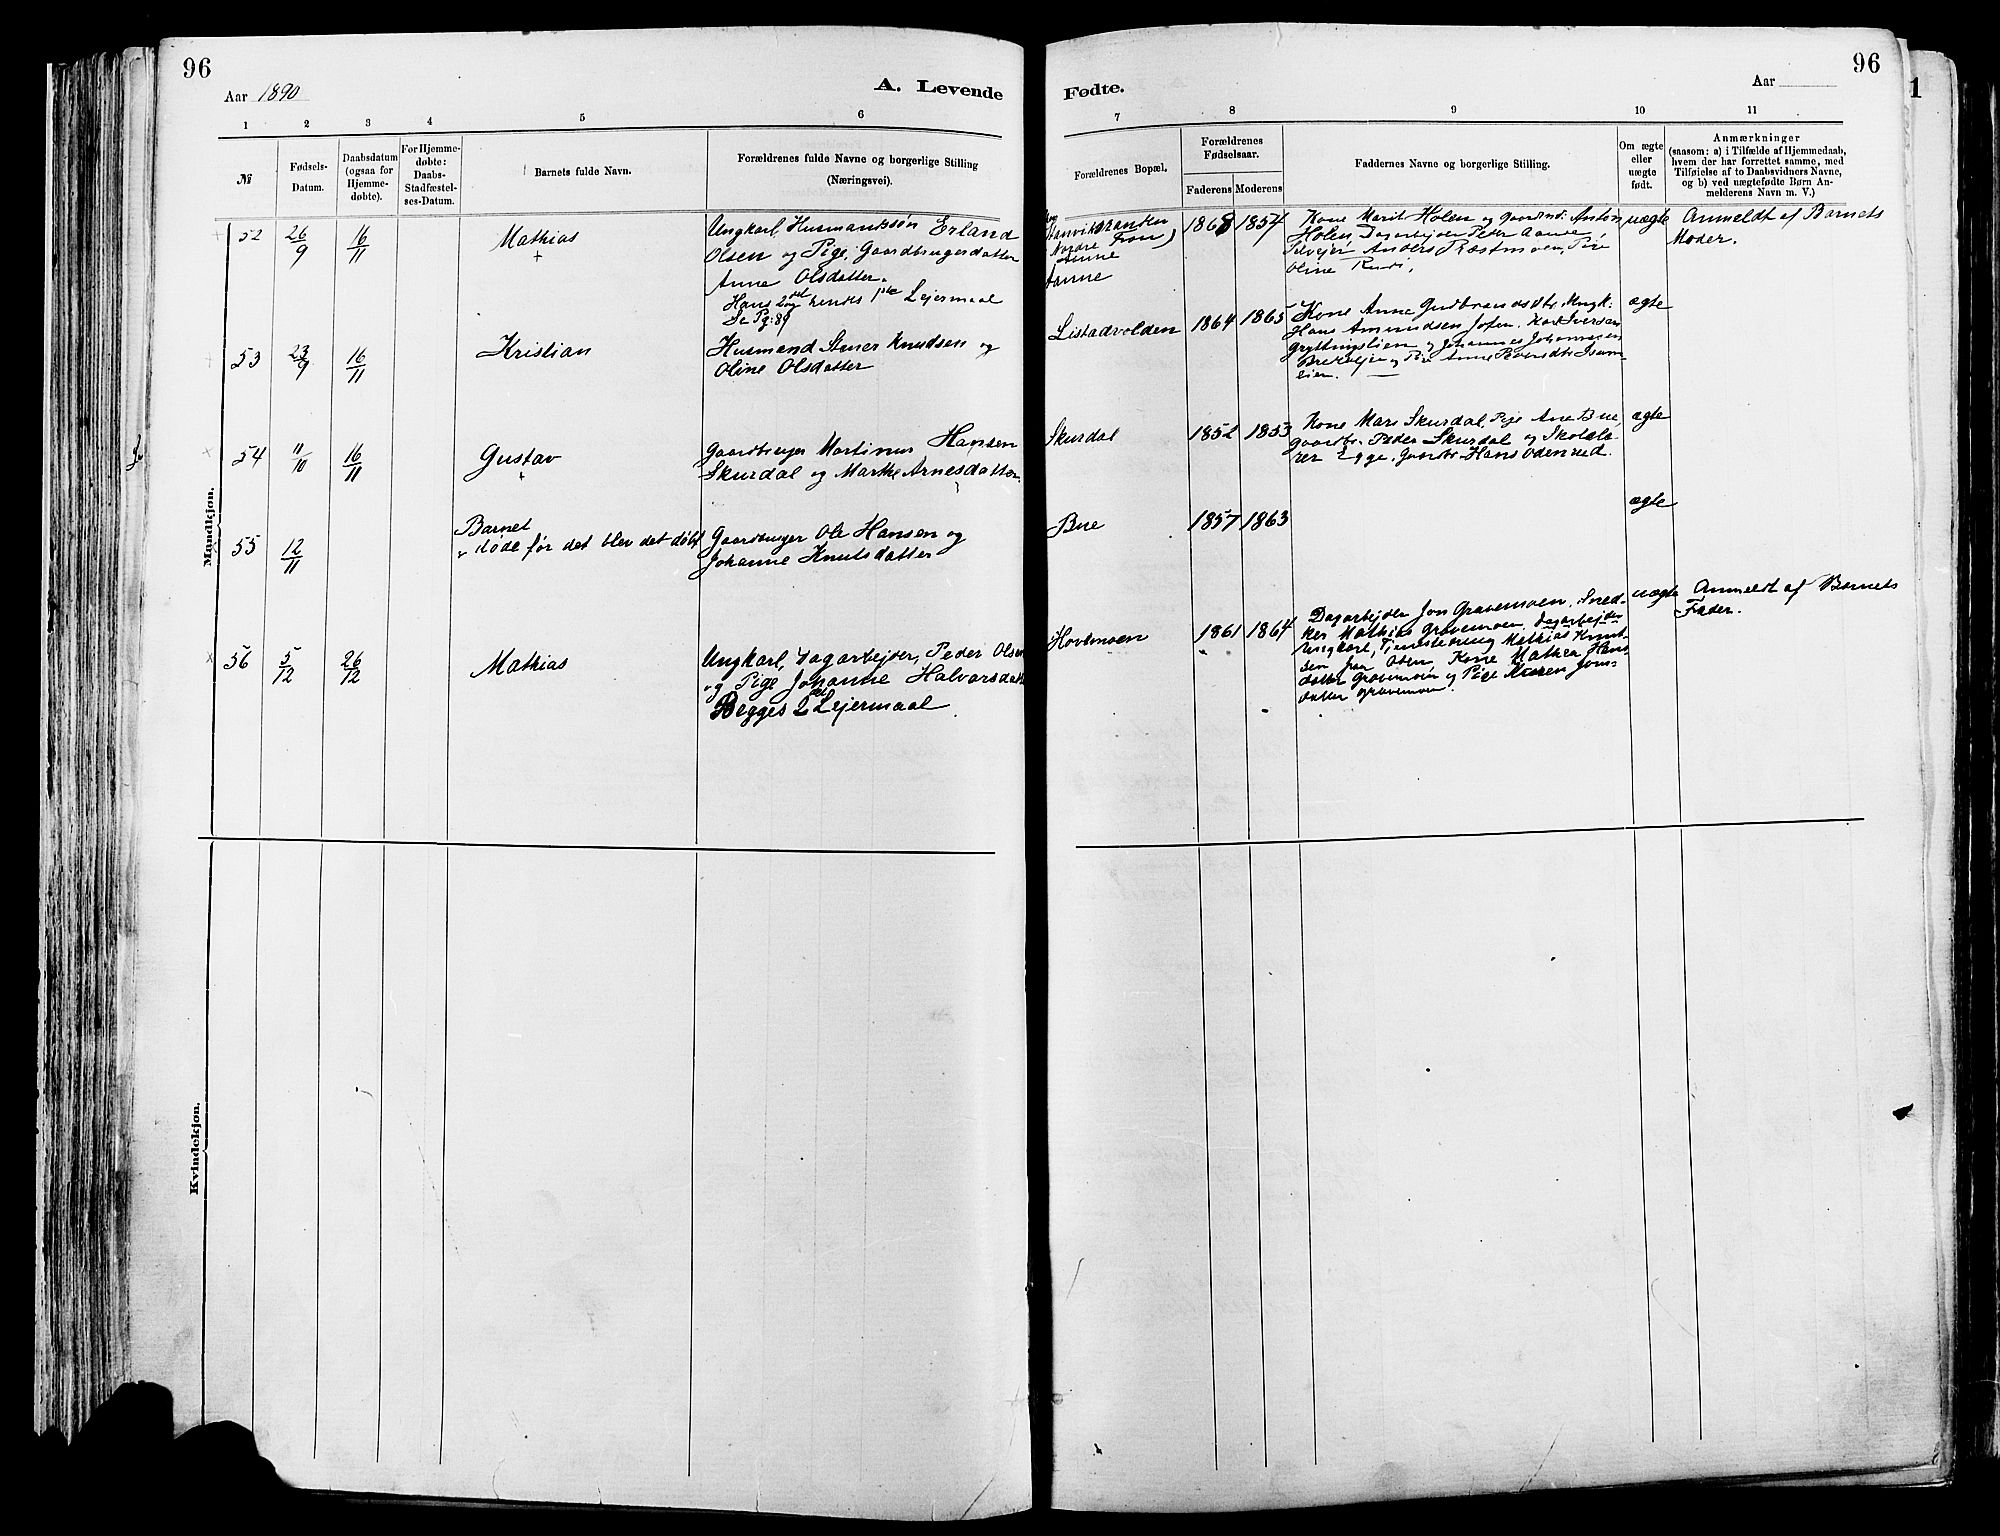 96
Aar 1890
A. Levende
1 2 3 4 5 6
№
Fødsels-
Datum.
Daabsdatum
(ogsaa for
Hjemme-
døbte).
For Hjemme-
døbte:
Daabs-
Stadfæstel-
ses-Datum.
Barnets fulde Navn.
Forældrenes fulde Navne og borgerlige Stilling
(Næringsvei).
Mandkjøn.
52 26/9 16/11 Mathias
Ungkarl, Husmandssøn Erland
Olsen og Pige, Gaardbrugerdatter
Anne Olsdatter.
Hans 2det og hendes 1ste Lejermaal
Se Pg: 89
53 23/9 16/11 Kristian
Husmand Stener Knudsen og
Oline Olsdatter
54 11/10 16/11 Gustav
Gaardbruger Martinus Hansen
Skurdal og Marthe Arnesdatter
55 12/11
Barnet
døde før det blev det døbt
Gaardbruger Ole Hansen og
Johanne Knutsdatter
56 5/12 26/12 Mathias
Ungkarl, Dagarbejder, Peder Olsen
og Pige Johanne Halvorsdatt
Begges 2det Lejermaal
Kvindekjøn.
96
Fødte.
Aar
7 8 9 10 11
Forældrenes Bopæl.
Forældrenes
Fødselsaar.
Faderens Moderens
Faddernes Navne og borgerlige Stilling.
Om ægte
eller
uægte
født.
Anmærkninger
(saasom: a) i Tilfælde af Hjemmedaab,
hvem der har forrettet samme, med
Tilføielse af to Daabsvidners Navne,
og b) ved uægtefødte Børn An-
melderens Navn m. V.)
Nordre Fron)
Anne
1868 1857
Kone Marit Holen og Gaardmd: Anton
Holen Dagarbejder Peter Aanse
Anders Præstmoen, Pige
Oline
uægte
Anmeldt af Barnets
Moder.
Listadvolden 1864 1865
Kone Anne Gudbrandsdtr. Ungk:
Hans Amundsen Karl Iversen
Grytlingslien og Johannes Johannesen
og Pige Anne
lien.
ægte
Skurdal 1852 1853
Kone Mari Skurdal, Pige Ane Bue,
Gaardbr. Peder Skurdal og Skolelæ-
rer Egge, Gaardbr. Hans Odenrud.
ægte
Bue 1857 1863
ægte
Hovemoen 1861 1864
Dagarbejder Jon Gravemoen, Sned-
ker Mathias Gravemoen, Dagarbejder
Ungkarl, Tjenestedreng Mathias Knut-
sen fra Oden, Kone Mathea Hans-
datter Gravemoen og Pige Karen Jons-
datter Gravemoen.
uægte
Anmeldt af Barnets
Fader.
1